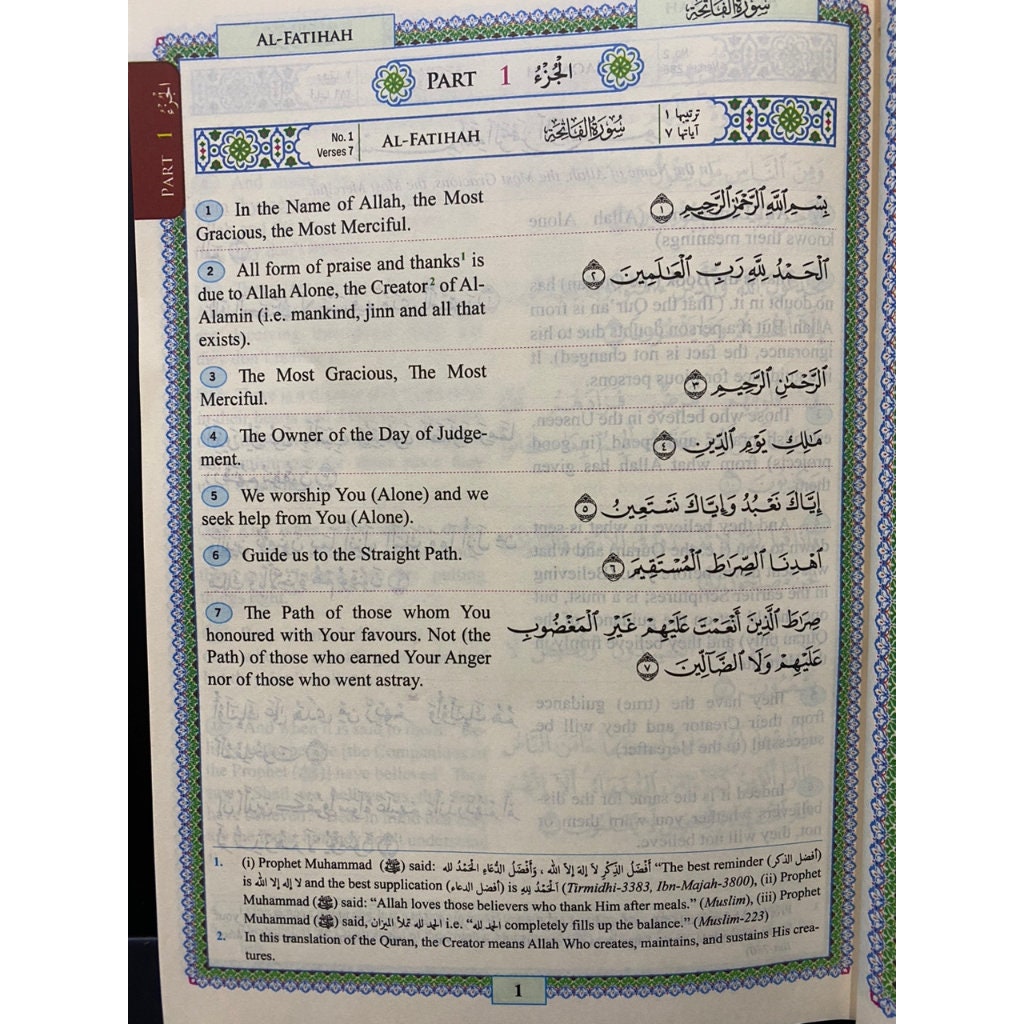 AL-FATIHAH
سُورَةُ الْفَاتِحَةِ
PART 1 الْجُزْءُ
PART 1 الجزء
No. 1
Verses 7
AL-FATIHAH
سُورَةُ الْفَاتِحَةِ
ترتيبها ١
آياتها ٧
1 In the Name of Allah, the Most
Gracious, the Most Merciful.
بِسْمِ ٱللَّهِ ٱلرَّحْمَٰنِ ٱلرَّحِيمِ ١
2 All form of praise and thanks¹ is
due to Allah Alone, the Creator² of Al-
Alamin (i.e. mankind, jinn and all that
exists).
ٱلْحَمْدُ لِلَّهِ رَبِّ ٱلْعَٰلَمِينَ ٢
3 The Most Gracious, The Most
Merciful.
ٱلرَّحْمَٰنِ ٱلرَّحِيمِ ٣
4 The Owner of the Day of Judge-
ment.
مَٰلِكِ يَوْمِ ٱلدِّينِ ٤
5 We worship You (Alone) and we
seek help from You (Alone).
إِيَّاكَ نَعْبُدُ وَإِيَّاكَ نَسْتَعِينُ ٥
6 Guide us to the Straight Path.
ٱهْدِنَا ٱلصِّرَٰطَ ٱلْمُسْتَقِيمَ ٦
7 The Path of those whom You
honoured with Your favours. Not (the
Path) of those who earned Your Anger
nor of those who went astray.
صِرَٰطَ ٱلَّذِينَ أَنْعَمْتَ عَلَيْهِمْ غَيْرِ ٱلْمَغْضُوبِ
عَلَيْهِمْ وَلَا ٱلضَّآلِّينَ ٧
1. (i) Prophet Muhammad (ﷺ) said: أَفْضَلُ الذِّكْرِ لاَ إِلهَ إِلاَّ الله ، وَأَفْضَلُ الدُّعَاءِ الْحَمْدُ لله "The best reminder (أفضل الذكر)
is لا إله إلا الله and the best supplication (أفضل الدعاء) is الْحَمْدُ لِلهِ (Tirmidhi-3383, Ibn-Majah-3800), (ii) Prophet
Muhammad (ﷺ) said: "Allah loves those believers who thank Him after meals." (Muslim), (iii) Prophet
Muhammad (ﷺ) said, الحمد لله تملأ الميزان i.e. "الحمد لله completely fills up the balance." (Muslim-223)
2. In this translation of the Quran, the Creator means Allah Who creates, maintains, and sustains His crea-
tures.
1